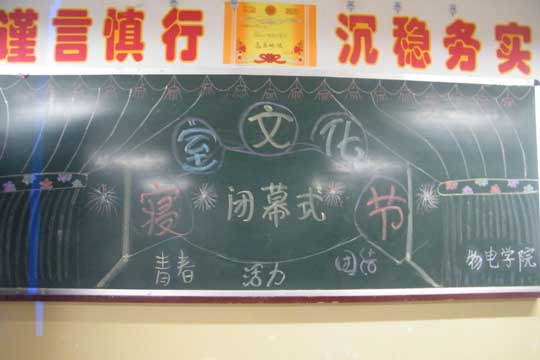 谨言慎行 沉稳务实
寝室文化节
闭幕式
青春 活力 团结
物电学院